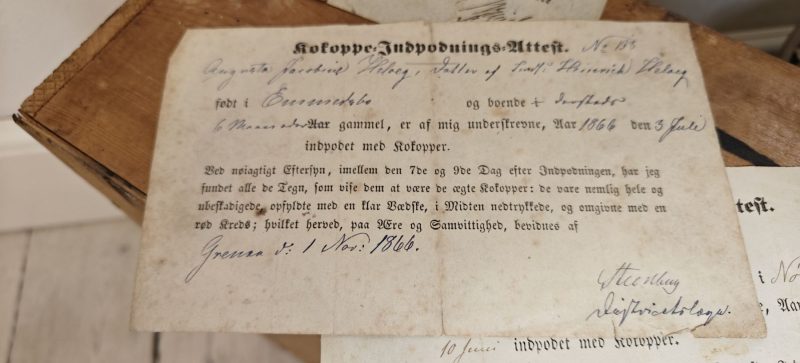 Kokoppe-Indpodnings-Attest. No 113
Augusta Jacobine Helweg, Datter af Heinrich Helweg
født i Emmedsbo og boende i dersteds
6 Maaneder Aar gammel, er af mig underskrevne, Aar 1866 den 3 Juli
indpodet med Kokopper.
Ved nøiagtig Eftersyn, imellem den 7de og 9de Dag efter Indpodningen, har jeg
fundet alle de Tegn, som vise dem at være de ægte Kokopper: de vare nemlig hele og
ubeskadigede, opfyldte med en klar Vædske, i Midten nedtrykkede, og omgivne med en
rød Kreds; hvilket herved, paa Ære og Samvittighed, bevidnes af
Grenaa d: 1 Nov: 1866.
Distriktslæge.
ttest.
i Nø
me, Aar
10 Juni indpodet med Kokopper.